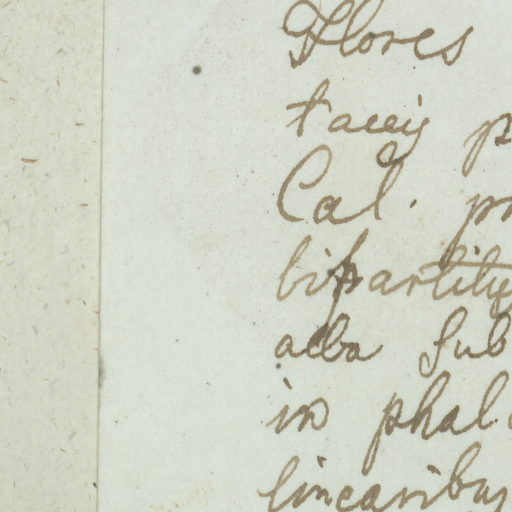 Flores
taceis p
Cal. pr
bipartitis
alba sub
in phal
linearibus